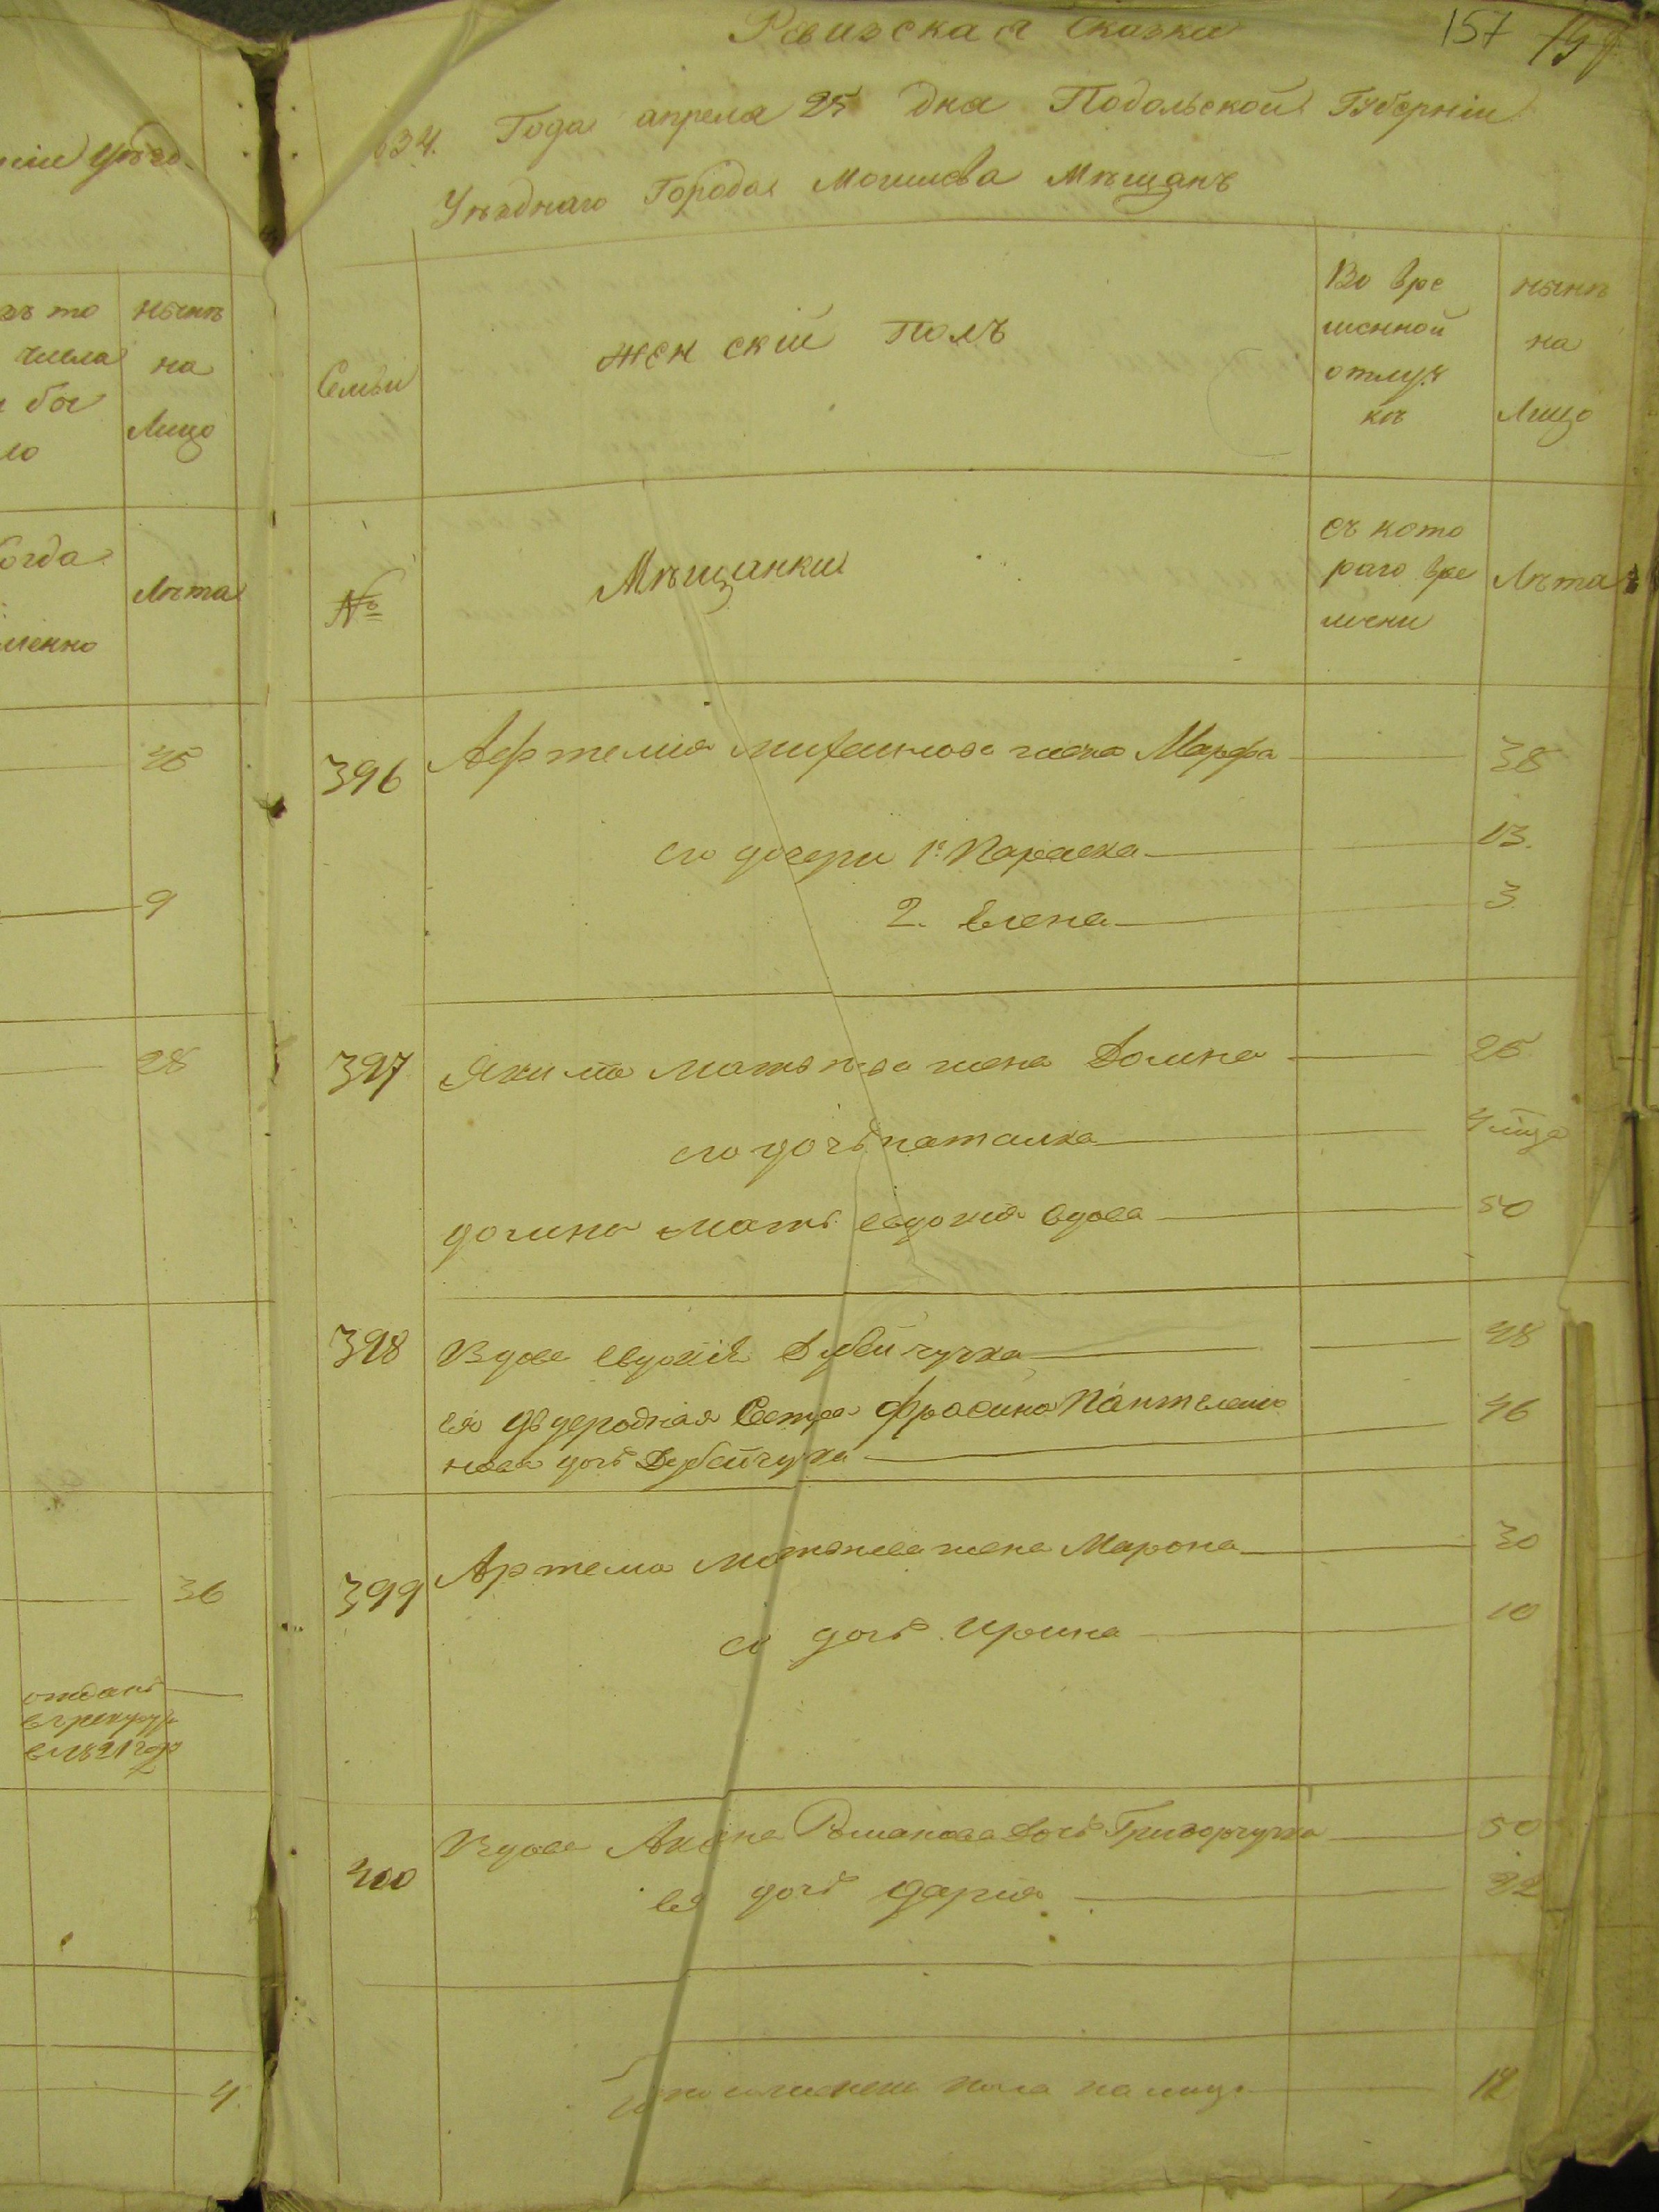 Ревизская Сказка
157
34. Года апреля 25 дня Подольской Губерніи
Уѣзднаго Города Могилева Мѣщанъ
то
числа
ло
нынѣ
на
Лицо
Лѣта
45
9
28
36
отданъ
въ рекруты
въ 1821 годѣ
4
Семьи
женскій полъ
Во вре
менной
отлуч
кѣ
нынѣ
на
Лицо
№
Мѣщанки
съ кото
раго вре
мени
Лѣта
396 Афтемія Михайлова жена Марфа 38
его дочери 1я Параска 13.
2. Елена 3
397 Якима Матвѣева жена Домна 25
его дочь наталка 4 мѣца
домны мать евдокія вдова 50
398 Вдова евдокія 48
ея двуеродная Сестра Фросина Пантелеимо
нова дочь 46
399 Артема жена Марона 30
его дочь Ирина 10
400 Вдова Романова дочь Григорчучка 50
ея дочь дарія 32
Итого женска пола на лицо 12